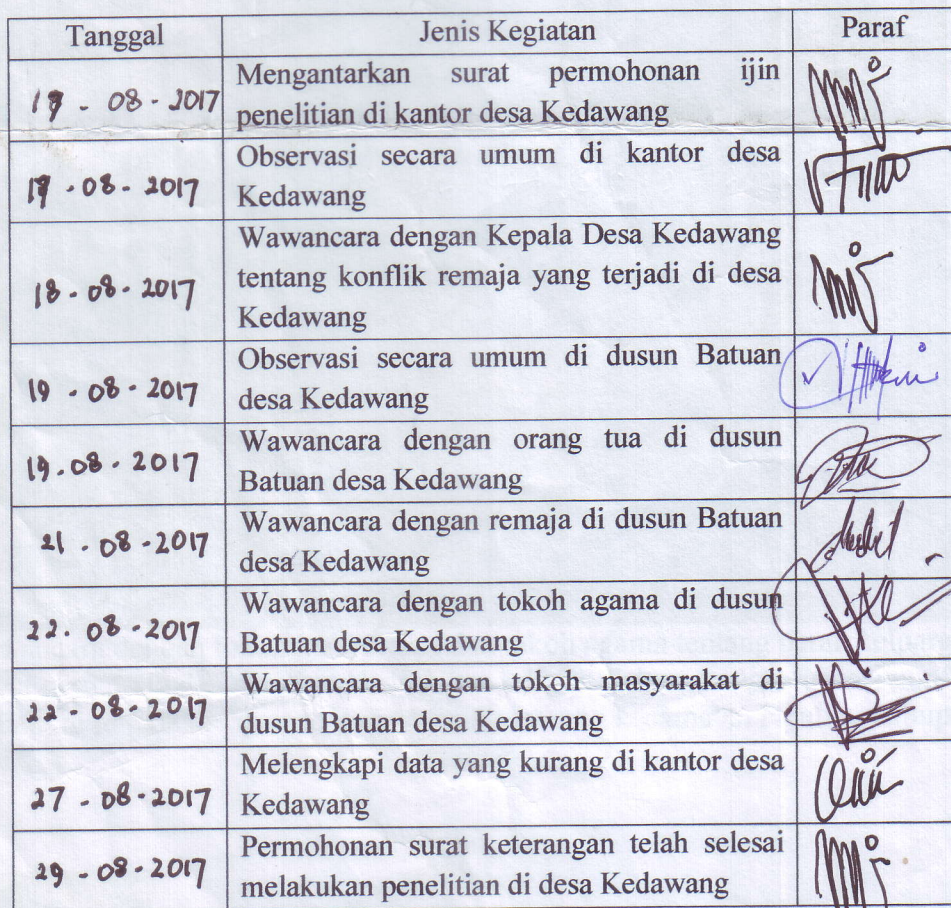 Tanggal Jenis Kegiatan Paraf
Mengantarkan surat permohonan ijin
penelitian di kantor desa Kedawang
- 08 - 2017
Observasi secara umum di kantor desa
Kedawang
- 08 - 2017
Wawancara dengan Kepala Desa Kedawang
tentang konflik remaja yang terjadi di desa
Kedawang
18 - 08 - 2017
Observasi secara umum di dusun Batuan
desa Kedawang
19 - 08 - 2017
Wawancara dengan orang tua di dusun
Batuan desa Kedawang
19 . 08 . 2017
Wawancara dengan remaja di dusun Batuan
desa Kedawang
21 - 08 - 2017
Wawancara dengan tokoh agama di dusun
Batuan desa Kedawang
22 . 08 . 2017
Wawancara dengan tokoh masyarakat di
dusun Batuan desa Kedawang
22 - 08 - 2017
Melengkapi data yang kurang di kantor desa
Kedawang
27 - 08 - 2017
Permohonan surat keterangan telah selesai
melakukan penelitian di desa Kedawang
29 - 08 - 2017